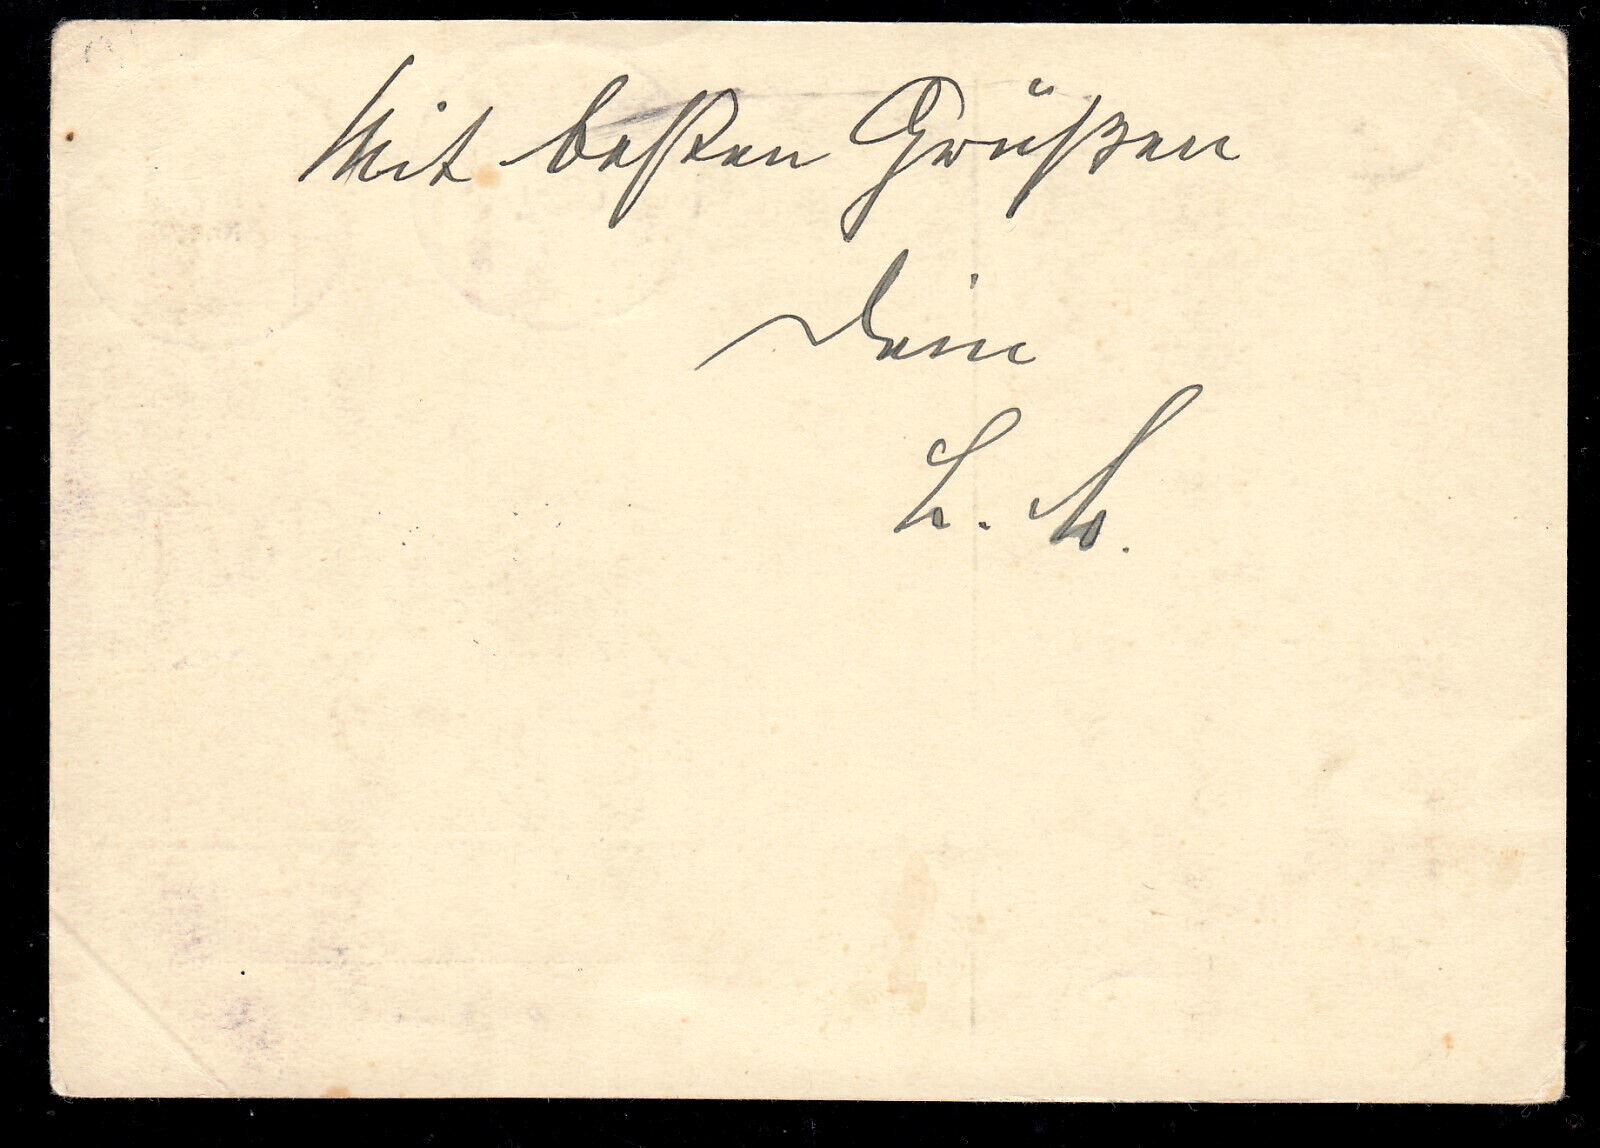 Mit besten Grüßen
Dein
L. A.